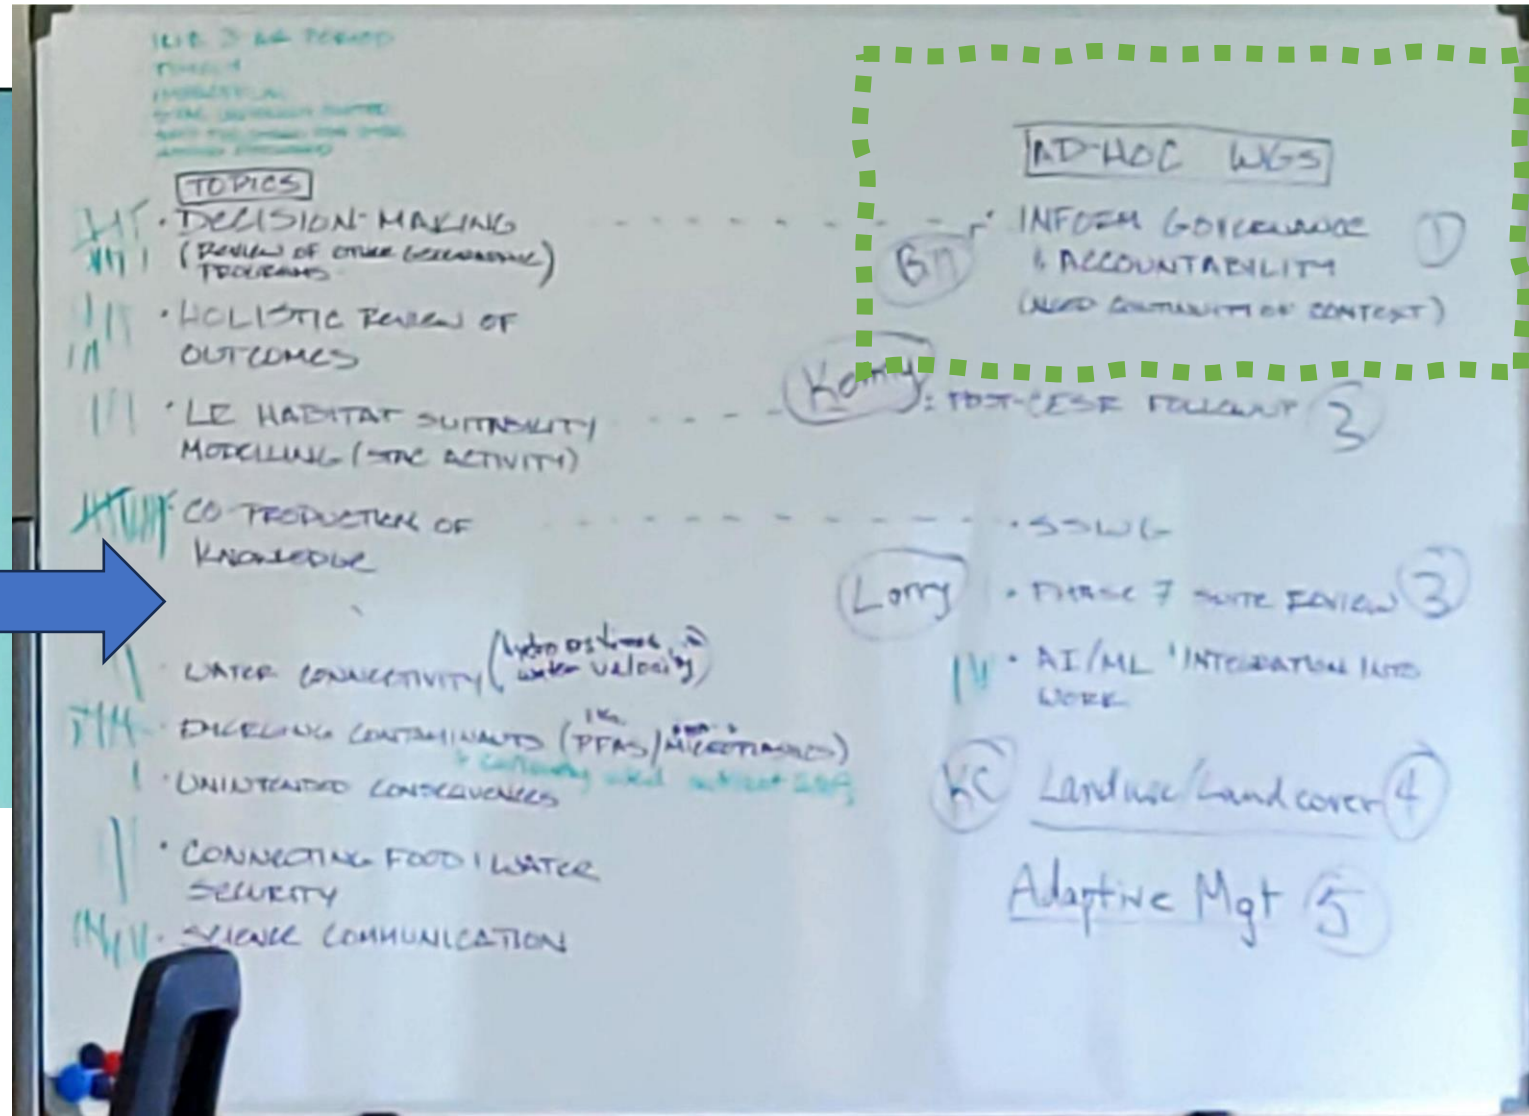 TOPICS
· DECISION-MAKING
(REVIEW OF OTHER GOVERNANCE)
PROGRAMS
· HOLISTIC REVIEW OF
OUTCOMES
· LE HABITAT SUITABILITY
MODELLING (STAC ACTIVITY)
· CO-PRODUCTION OF
KNOWLEDGE
· WATER CONNECTIVITY (
water velocity)
· EMERGING CONTAMINANTS (PFAS/MICROPLASTICS)
· UNINTENDED CONSEQUENCES
· CONNECTING FOOD/WATER
SECURITY
· SCIENCE COMMUNICATION
AD-HOC WGS
· INFORM GOVERNANCE 1
& ACCOUNTABILITY
(NEED CONTINUITY OF CONTEXT)
: POST-CESR FOLLOWUP
· SSWG
Lorry · PHASE 7 SUITE REVIEW 3
· AI/ML INTEGRATION INTO
WORK
KC Landuse/Landcover 4
Adaptive Mgt 5